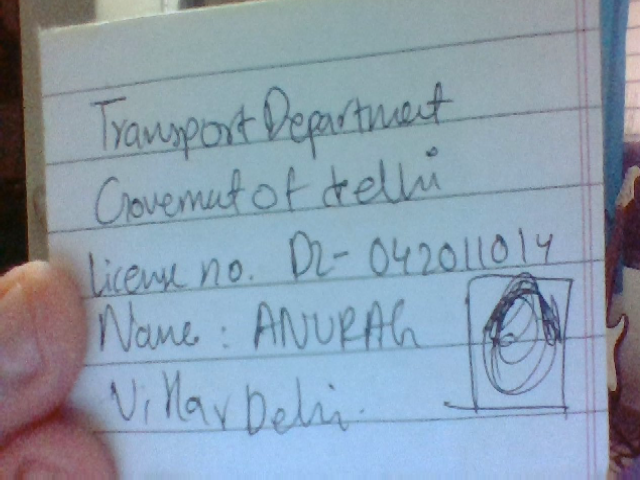 Transport Department
Government of Delhi
License no. DL-042011014
Name : ANURAG
Vihar Delhi.